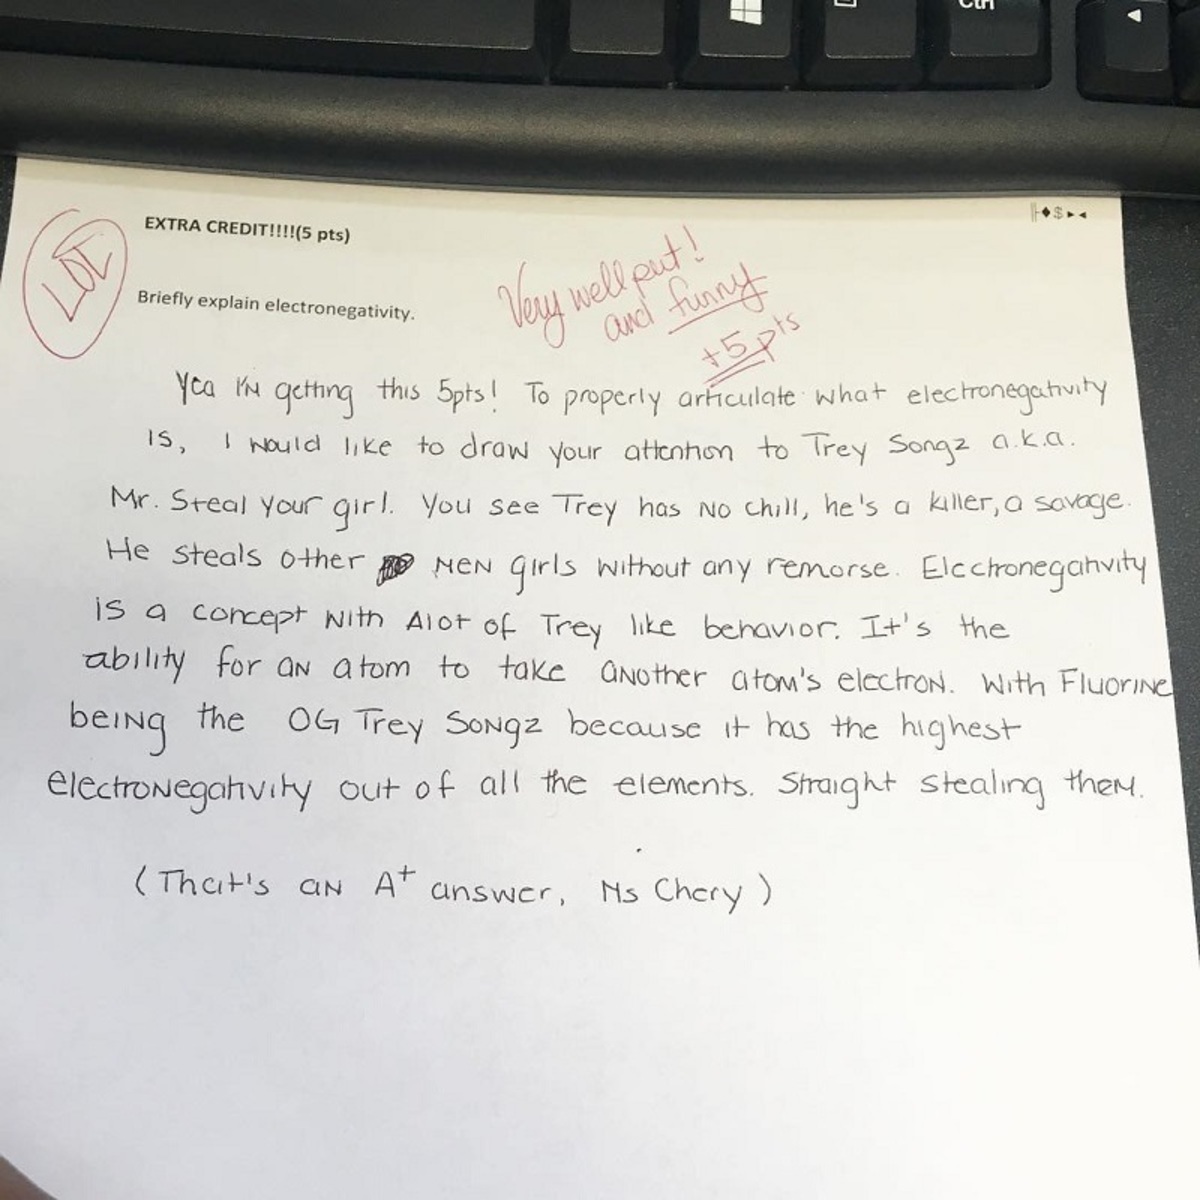 Ctrl
EXTRA CREDIT!!!!(5 pts)
LOL
Briefly explain electronegativity.
Very well put!
and funny
+5 pts
Yea I'm getting this 5pts! To properly articulate what electronegativity
is, I would like to draw your attention to Trey Songz a.k.a.
Mr. Steal your girl. You see Trey has no chill, he's a killer, a savage.
He steals other men girls without any remorse. Electronegativity
is a concept with Alot of Trey like behavior. It's the
ability for an atom to take another atom's electron. With Fluorine
being the OG Trey Songz because it has the highest
electronegativity out of all the elements. Straight stealing them.
(That's an A+ answer, Ms Chery)